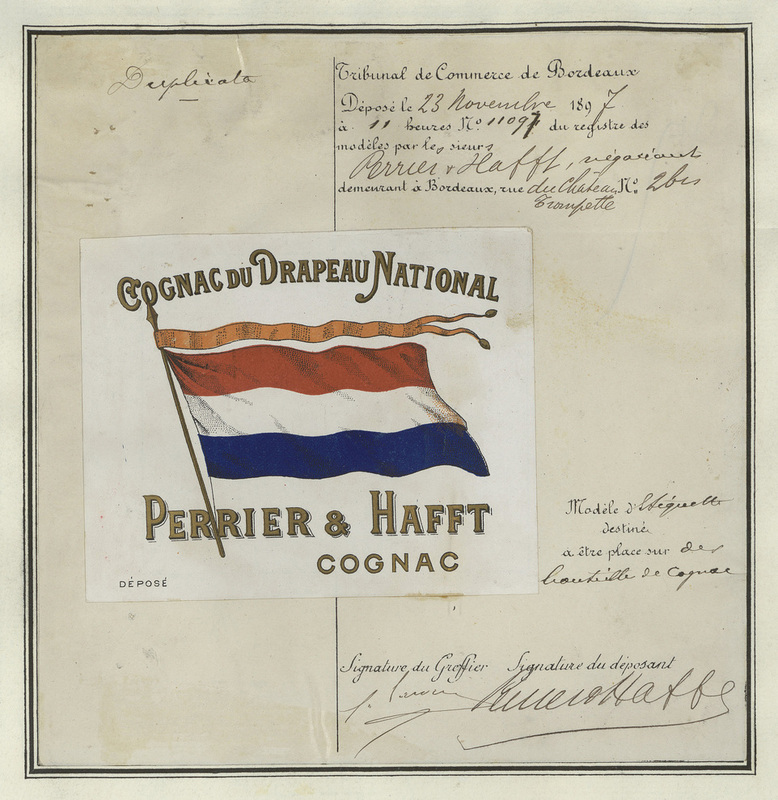 Duplicata
Tribunal de Commerce de Bordeaux
Déposé le 23 Novembre 1897
à 11 heures No. 11097 du registre des
modèles par les sieurs
Perrier & Hafft, négociant
demeurant à Bordeaux, rue du Château No. 2 bis
Trompette
COGNAC DU DRAPEAU NATIONAL
PERRIER & HAFFT
COGNAC
DÉPOSÉ
Modèle d'Etiquette
destiné
à être place sur des
bouteille de Cognac
Signature du Greffier Signature du déposant
Perrier & Hafft